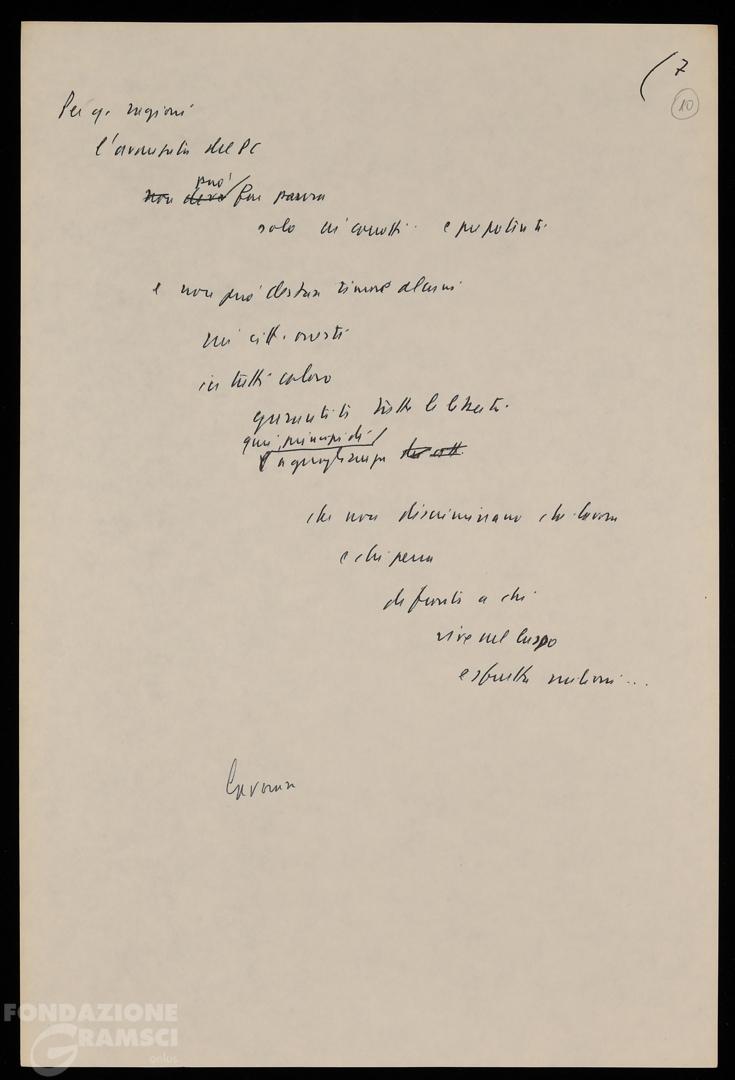 (7
10
Per q. ragioni
l'avanzata del PC
può
non deve far paura
solo ai corrotti e prepotenti
e non può destar timore alcuno
nei citt. onesti
in tutti coloro
garantiti tutte le libertà
quei principi di
eguaglianza
che non discriminano chi lavora
e chi pensa
di fronte a chi
vive nel lusso
e sfrutta milioni...
FONDAZIONE
GRAMSCI
onlus